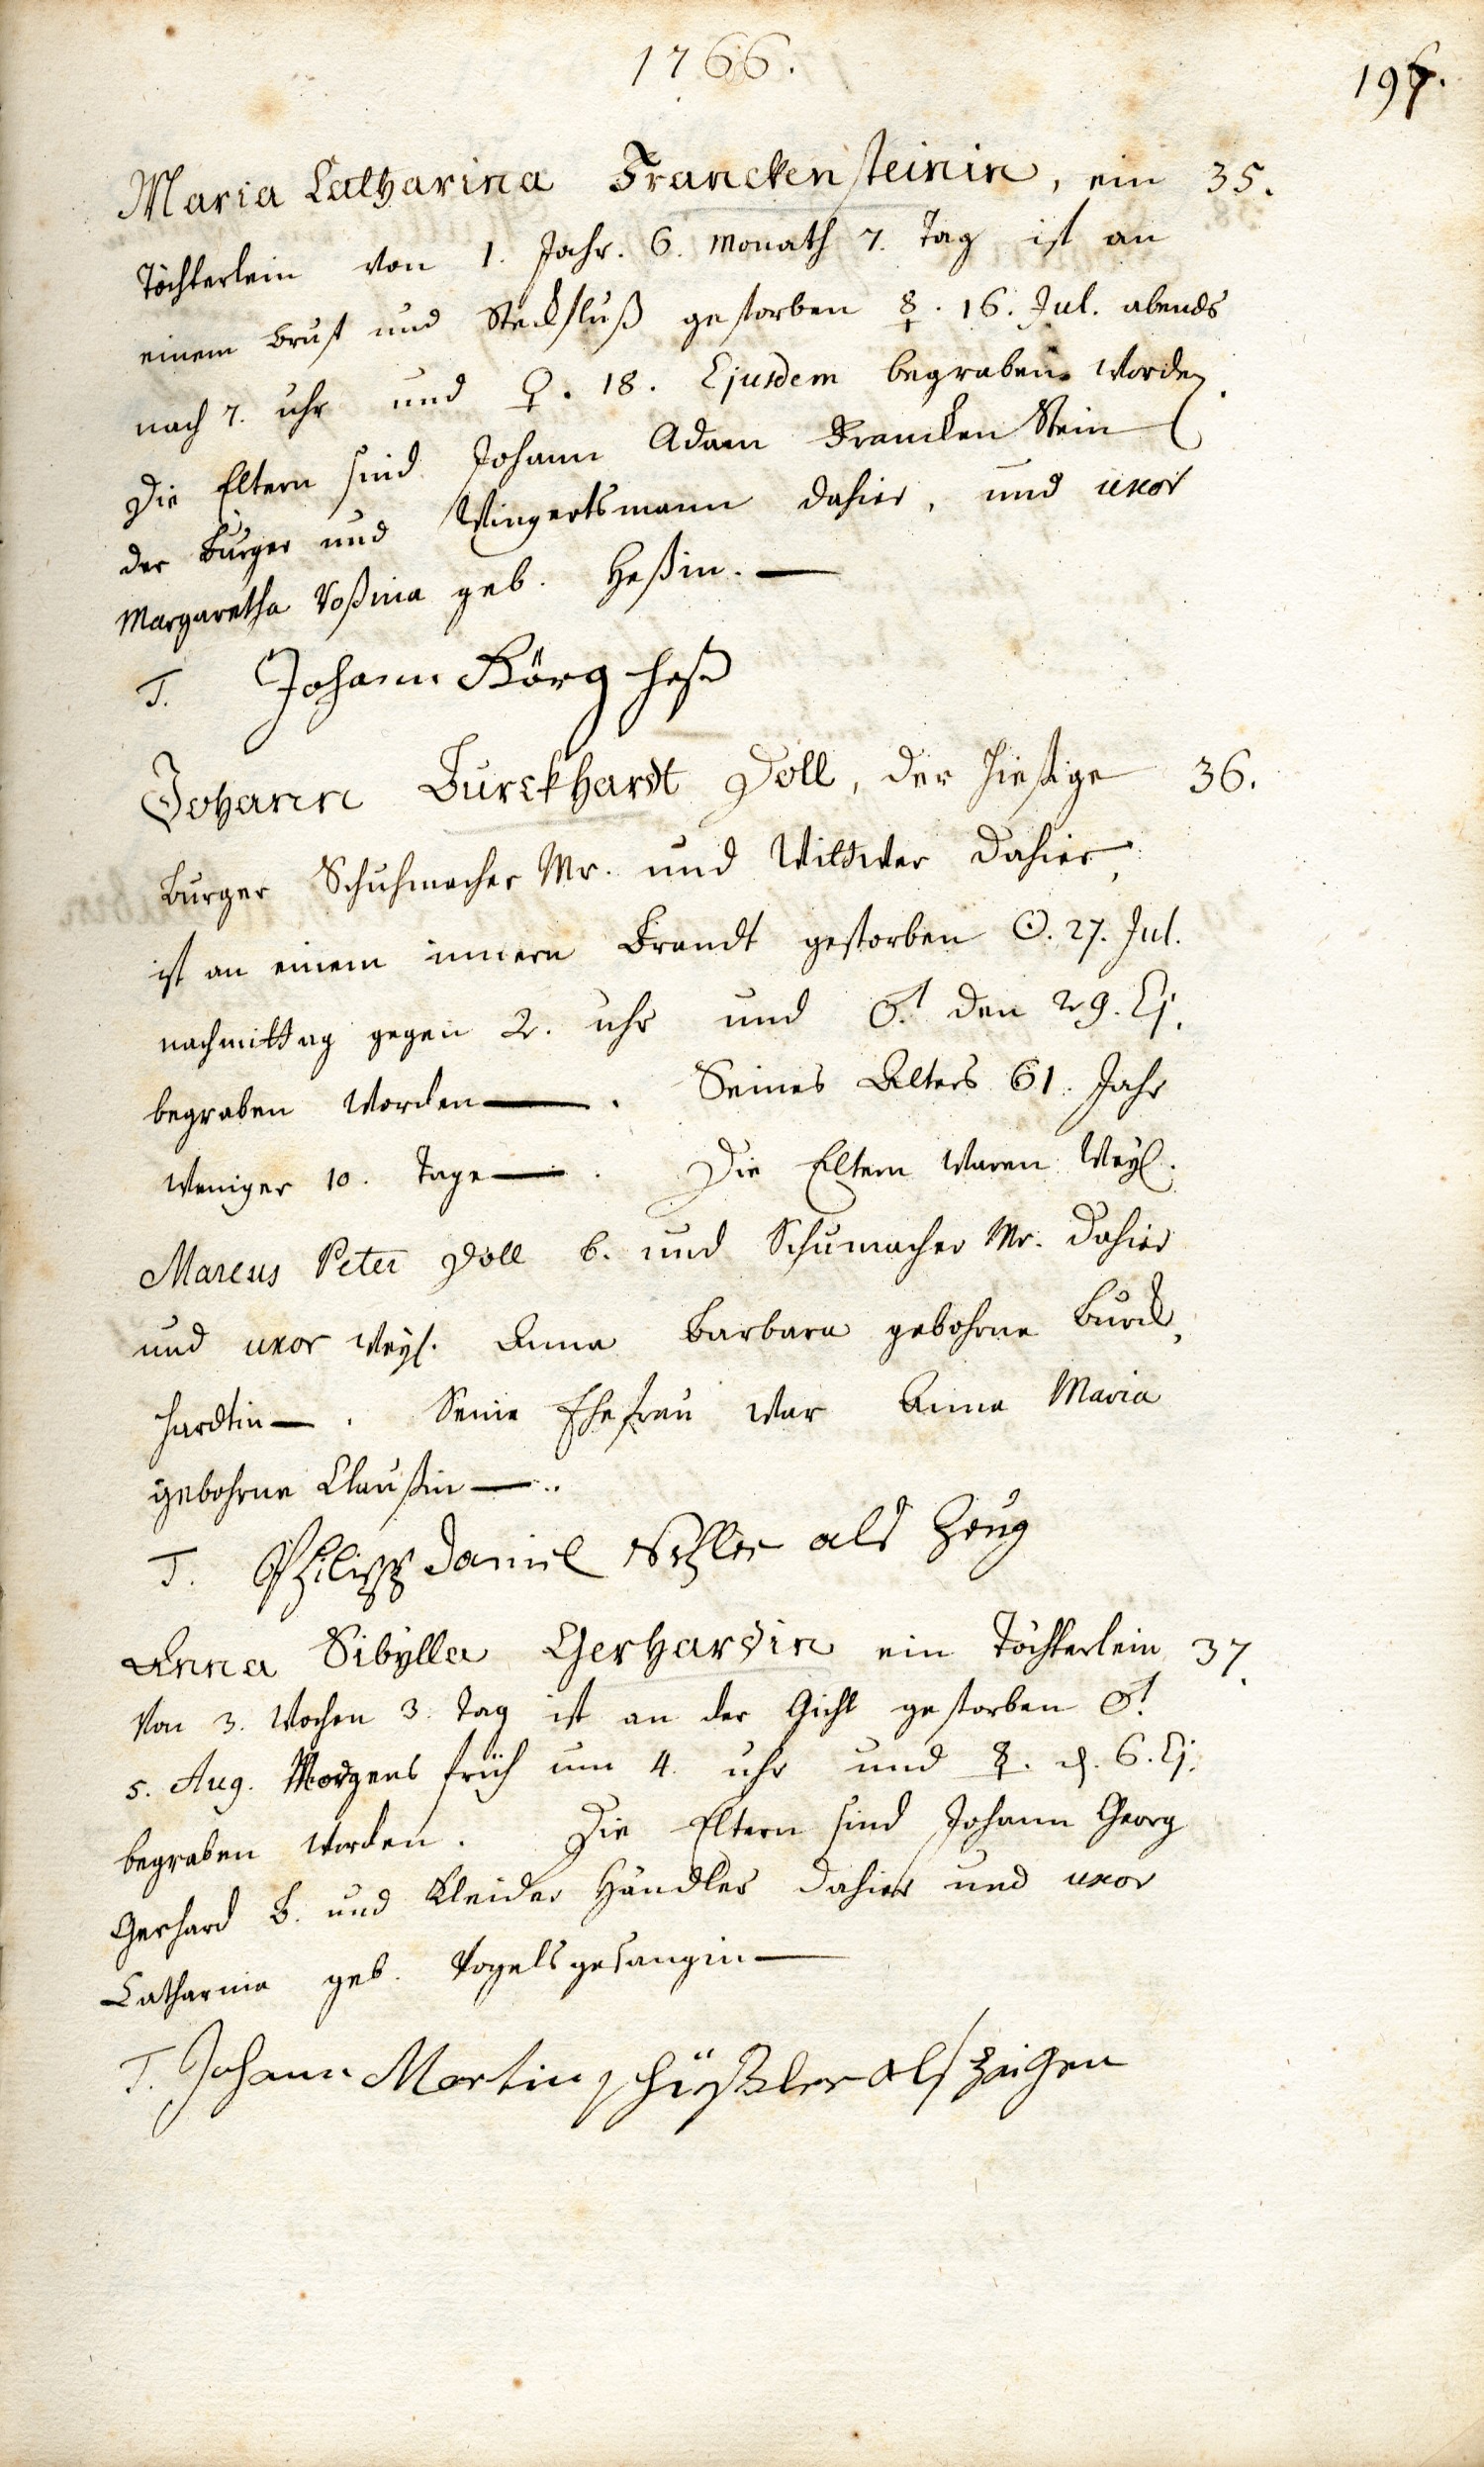 1766.
196.
Maria Catharina Franckensteinin, ein 35.
Töchterlein von 1. Jahr. 6. Monath 7. Tag ist an
einem Brust und Steckfluß gestorben ☿. 16. Jul. abends
nach 7. uhr und ♀. 18. Ejusdem begraben worden.
Die Eltern sind Johann Adam Francken Stein
der Burger und Wingertsmann dahier, und uxor
Margaretha Roßina geb. Heßin. —
T. Johann Görg Heß
Johann Burckhardt Doll, der hiesige 36.
Burger Schuhmacher Mr. und Wittwer dahier,
ist an einem innern Brandt gestorben ☉. 27. Jul.
nachmittag gegen 2. uhr und ♂. den 29. Ej.
begraben worden —. Seines Alters 61. Jahr
weniger 10. Tage —. Die Eltern waren weyl.
Marcus Peter Doll b. und Schumacher Mr. dahier
und uxor weyl. Anna Barbara gebohrne Burck,
hardtin —. Seine Ehefrau war Anna Maria
gebohrne Claußin —..
T. Philipp Daniel als Zeug
Anna Sibylla Gerhardin ein Töchterlein 37.
von 3. Wochen 3. Tag ist an der Gicht gestorben ♂.
5. Aug. Morgens früh um 4. uhr und ☿. d. 6. Ej.
begraben worden. Die Eltern sind Johann Georg
Gerhard B. und Kleider Händler dahier und uxor
Catharina geb. Vogelsgesangin —
T. Johann Martin schüßler als zeigen